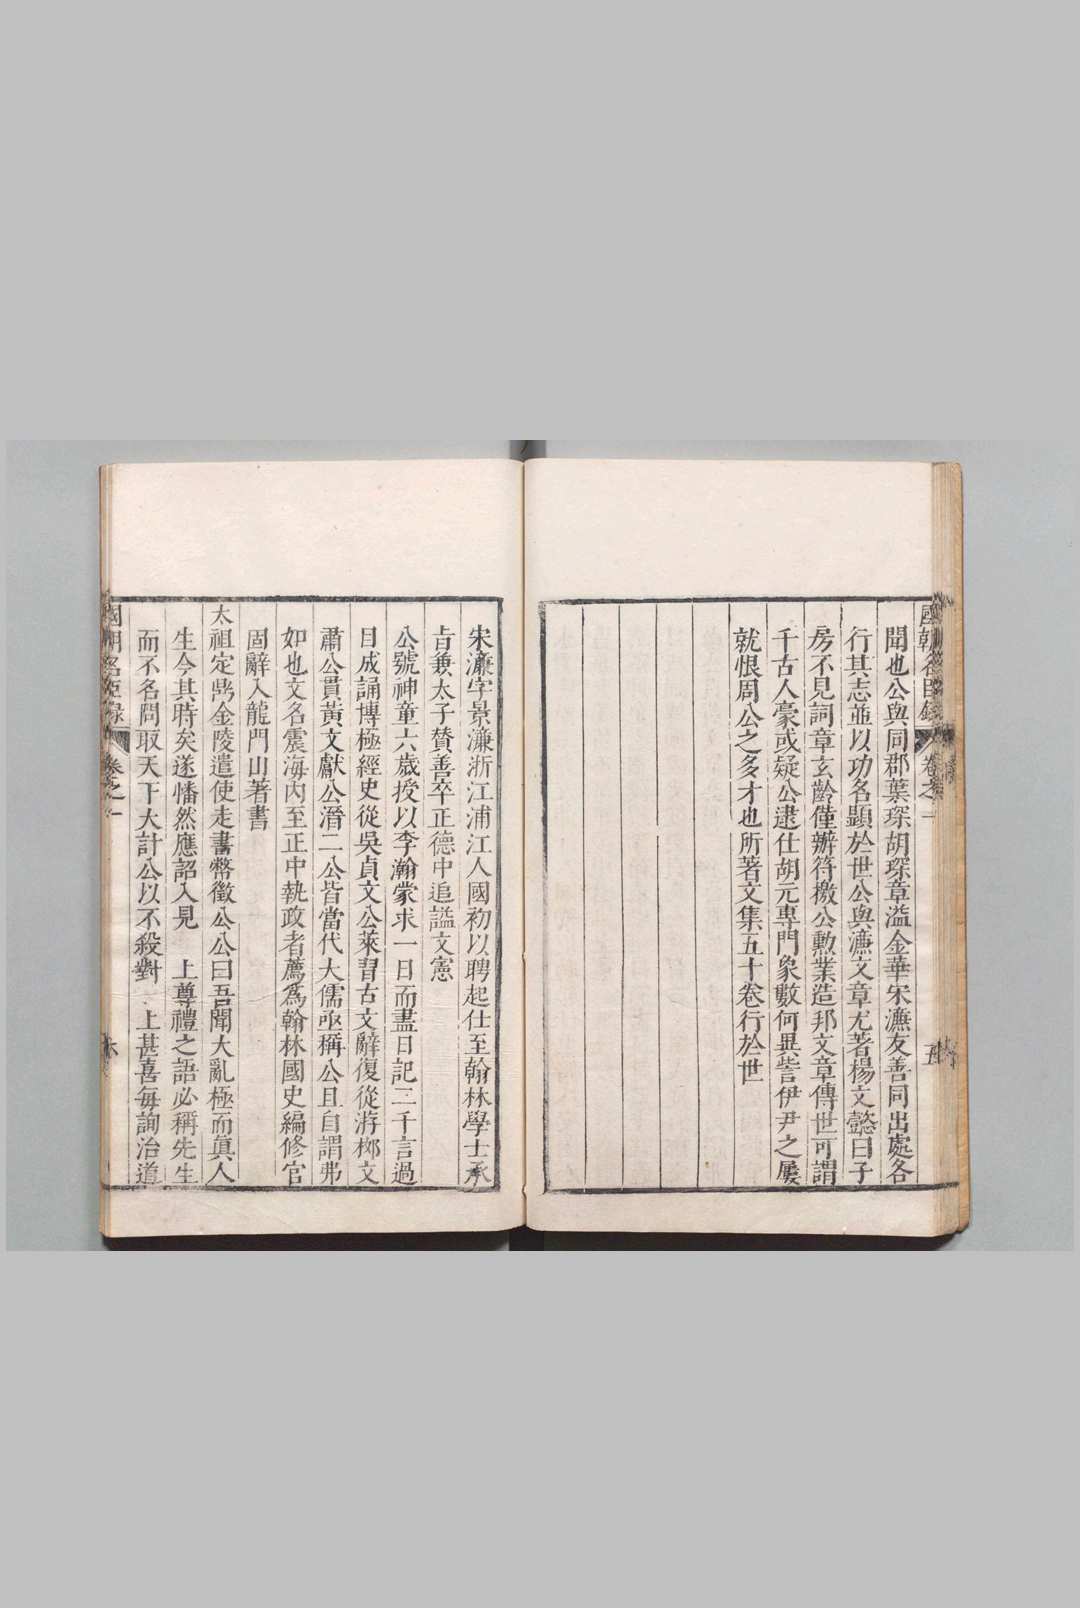 國朝名臣錄 卷之一 五
聞也公與同郡葉琛胡琛章溢金華宋濂友善同出處各
行其志並以功名顯於世公與濂文章尤著楊文懿曰子
房不見詞章玄齡僅辦符檄公勳業造邦文章傳世可謂
千古人豪或疑公逮仕胡元專門象數何異訾伊尹之屢
就恨周公之多才也所著文集五十卷行於世
宋濂字景濂浙江浦江人國初以聘起仕至翰林學士承
旨兼太子贊善卒正德中追謚文憲
公號神童六歲授以李瀚蒙求一日而盡日記二千言過
目成誦博極經史從吳貞文公萊習古文辭復從游栁文
肅公貫黃文獻公溍二公皆當代大儒亟稱公且自謂弗
如也文名震海內至正中執政者薦爲翰林國史編修官
固辭入龍門山著書
太祖定鼎金陵遣使走書幣徵公公曰吾聞大亂極而真人
生今其時矣遂幡然應詔入見 上尊禮之語必稱先生
而不名問取天下大計公以不殺對 上甚喜每詢治道
國朝名臣錄 卷之一 六